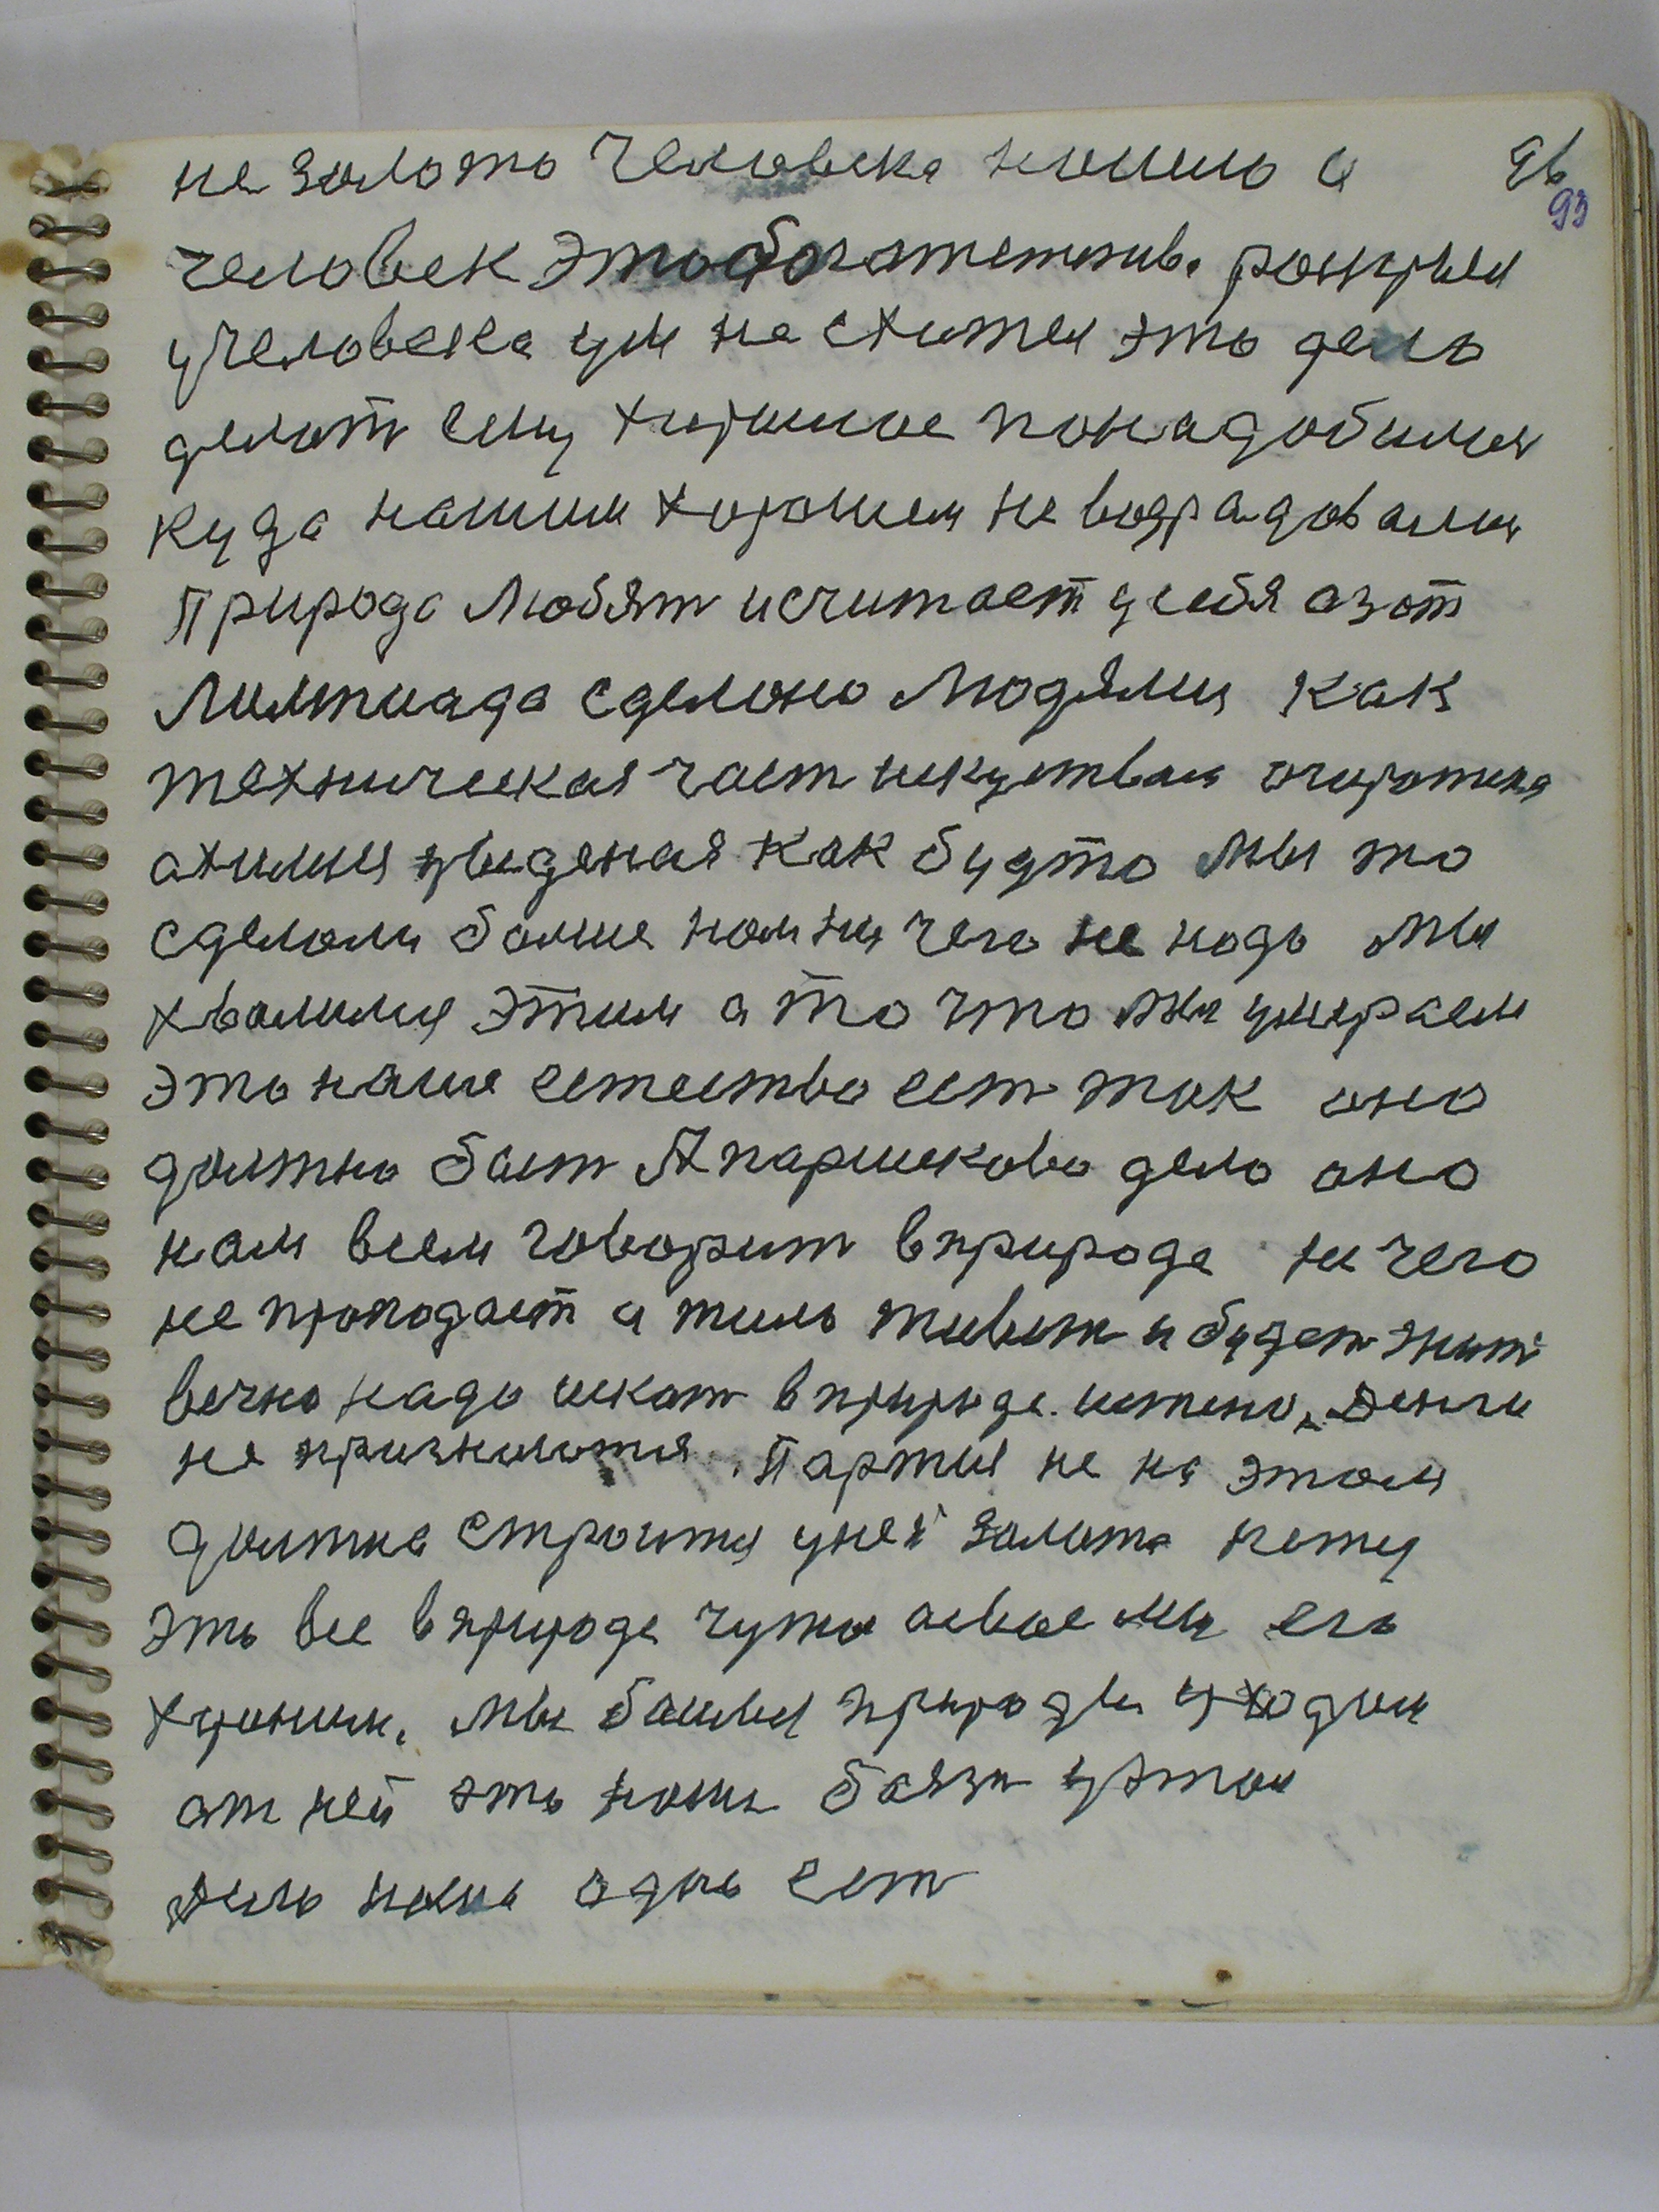 не золото человека нашло а 96
93
человек это богатеттво. раскрыл
учеловека ум на схител это дело
делат ему хорошое понадобился
куда нашим хорошем не возрадовались
Природа Любят исчитает усебя азот
Лимпиада сделоно Людями как
техническая част искуствая
ахилия уведеная как будто мы то
сделали болше нам ни чего не надо мы
хвалимся этим а то что мы умираем
это наше естество ест так оно
должно быт А паршеково дело оно
нам всем говорит вприроде ни чего
не пропадает а тило живит и будет жит
вечно надо искат вприроде истено, Денги
не признаются. Партия не на этом
должна строится уней золота нету
это все вприроде чужое аевое мы его
храним. мы баимся природы уходим
от ней это наша баязн уэтом
дело наше одно ест